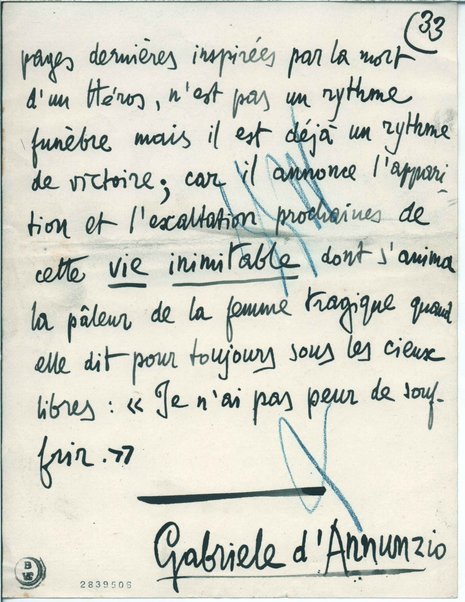 33
pages dernières inspirées par la mort
d'un Héros, n'est pas un rythme
funèbre mais il est déjà un rythme
de victoire; car il annonce l'appari-
tion et l'exaltation prochaines de
cette vie inimitable dont s'anima
la pâleur de la femme tragique quand
elle dit pour toujours sous les cieux
libres : « Je n'ai pas peur de souf-
frir. »
Gabriele d'Annunzio
2839506